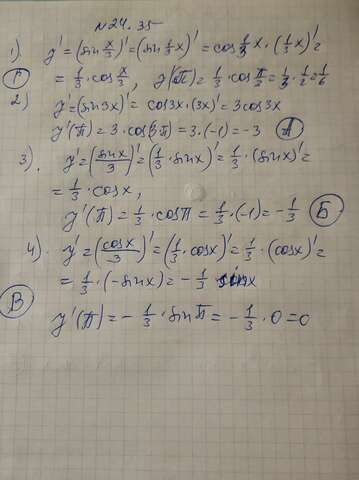 №24.35
1). y' = (sin x/3)' = (sin 1/3 x)' = cos 1/3 x · (1/3 x)' =
Г = 1/3 · cos x/3, y'(π) = 1/3 · cos π/3 = 1/3 · 1/2 = 1/6
2) y' = (sin 3x)' = cos 3x · (3x)' = 3 cos 3x
y'(π) = 3 · cos(3π) = 3 · (-1) = -3 А
3). y' = (sin x/3)' = (1/3 · sin x)' = 1/3 · (sin x)' =
= 1/3 · cos x,
y'(π) = 1/3 · cos π = 1/3 · (-1) = - 1/3 Б
4). y' = (cos x/3)' = (1/3 · cos x)' = 1/3 · (cos x)' =
= 1/3 · (-sin x) = - 1/3 sin x
В y'(π) = - 1/3 · sin π = - 1/3 · 0 = 0